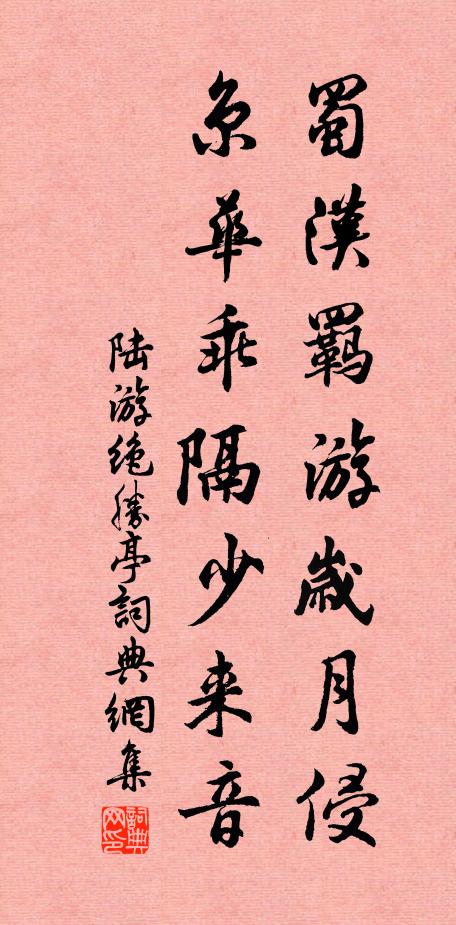 蜀漢羈游歲月侵
京華乖隔少来音
陆游绝勝亭詞典網集
詞典网印